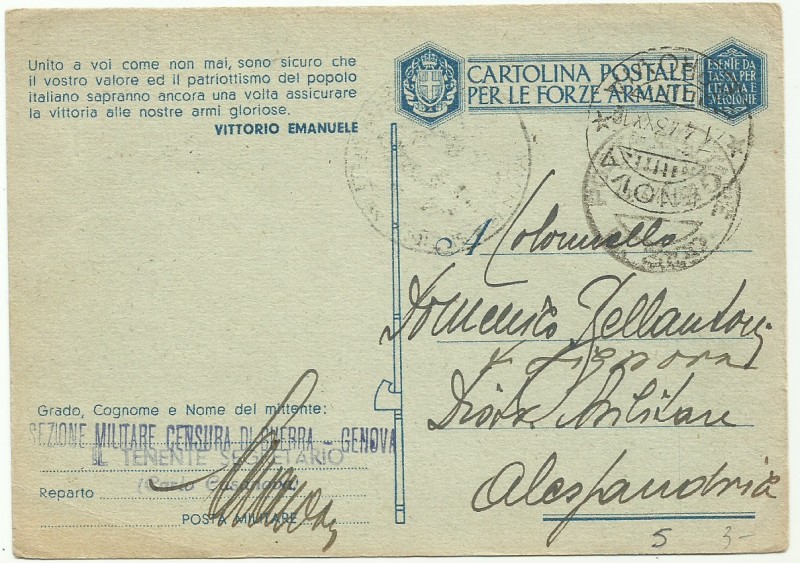 Unito a voi come non mai, sono sicuro che
il vostro valore ed il patriottismo del popolo
italiano sapranno ancora una volta assicurare
la vittoria alle nostre armi gloriose.
VITTORIO EMANUELE
CARTOLINA POSTALE
PER LE FORZE ARMATE
ESENTE DA
TASSA PER
L'ITALIA E
LE COLONIE
A Colonnello
Domenico Bellantoni
e Signora
Militare
Alessandria
Grado, Cognome e Nome del mittente:
SEZIONE MILITARE CENSURA DI GUERRA - GENOVA
IL TENENTE SEGRETARIO
(Carlo Casanova)
Reparto
POSTA MILITARE
5 3-